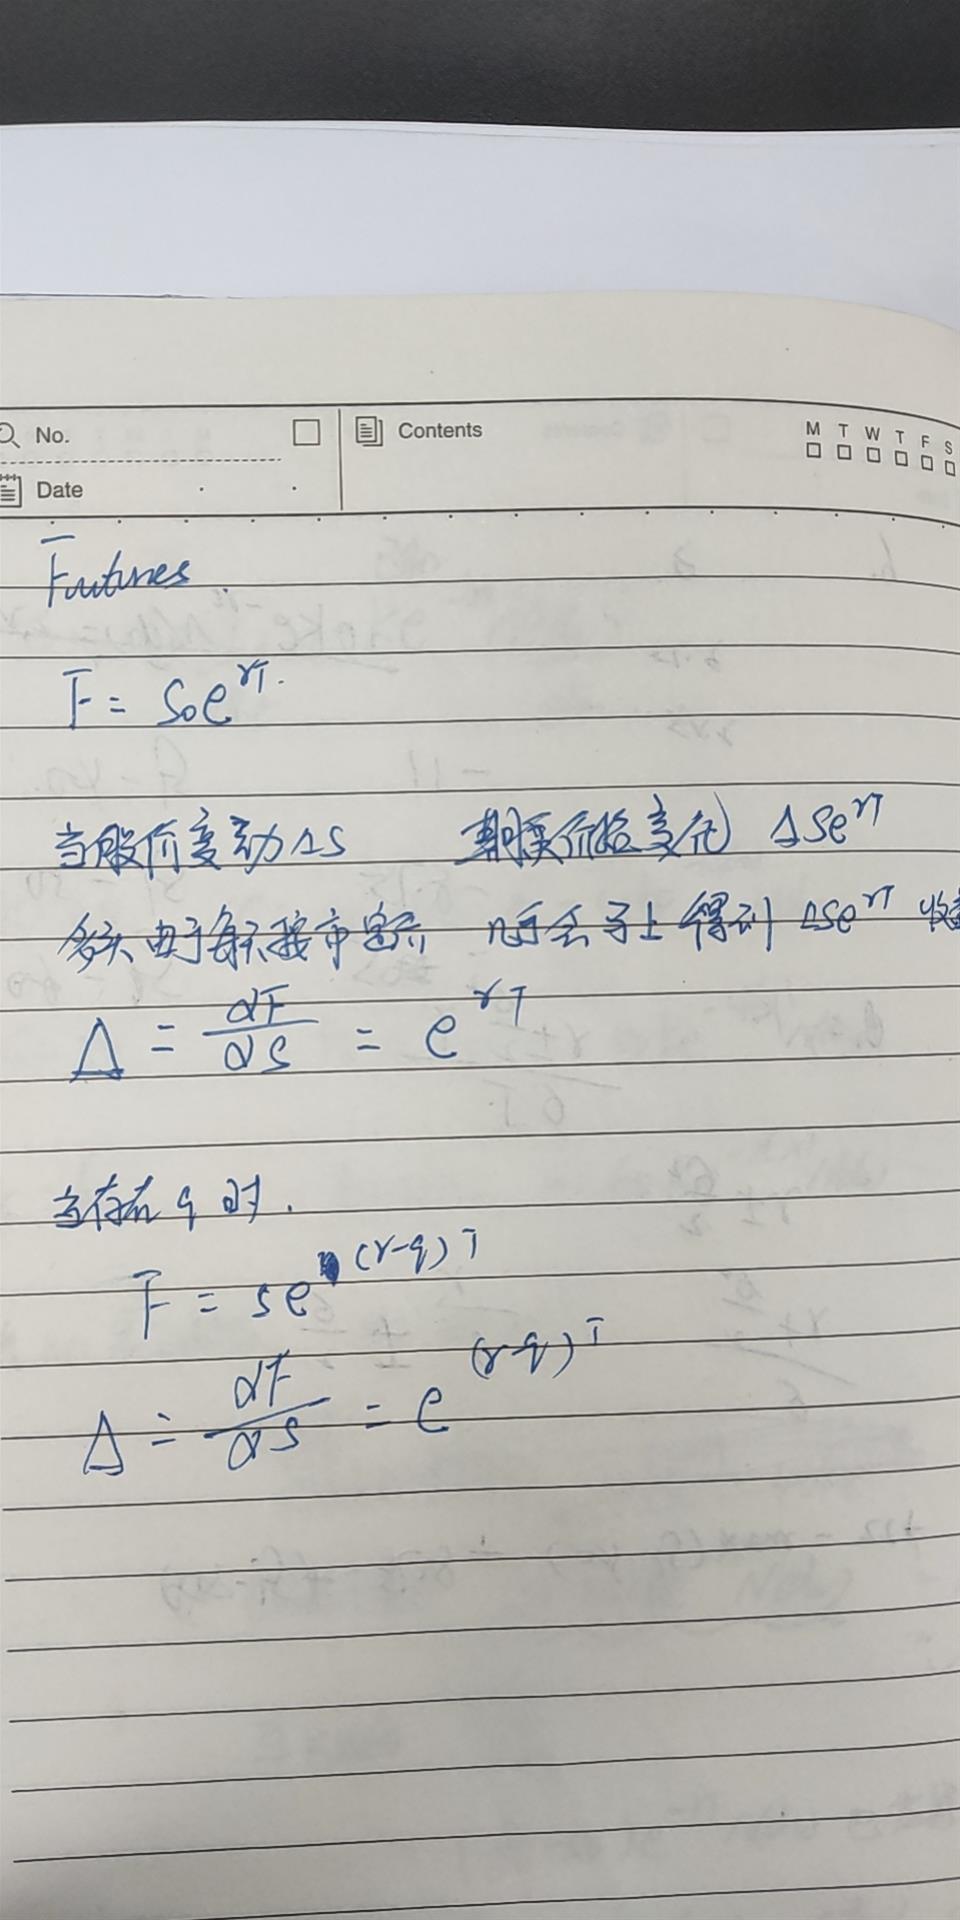 No.
Contents
M T W T F S
Date
Futures.
F = S₀e^{rT}.
当股价变动 ΔS 期货价格变化 ΔSe^{rT}
多头由于每天按市定价 几乎会马上得到 ΔSe^{rT} 收
Δ = dF/dS = e^{rT}
当存在 q 时.
F = se^{(r-q)T}
Δ = dF/dS = e^{(r-q)T}